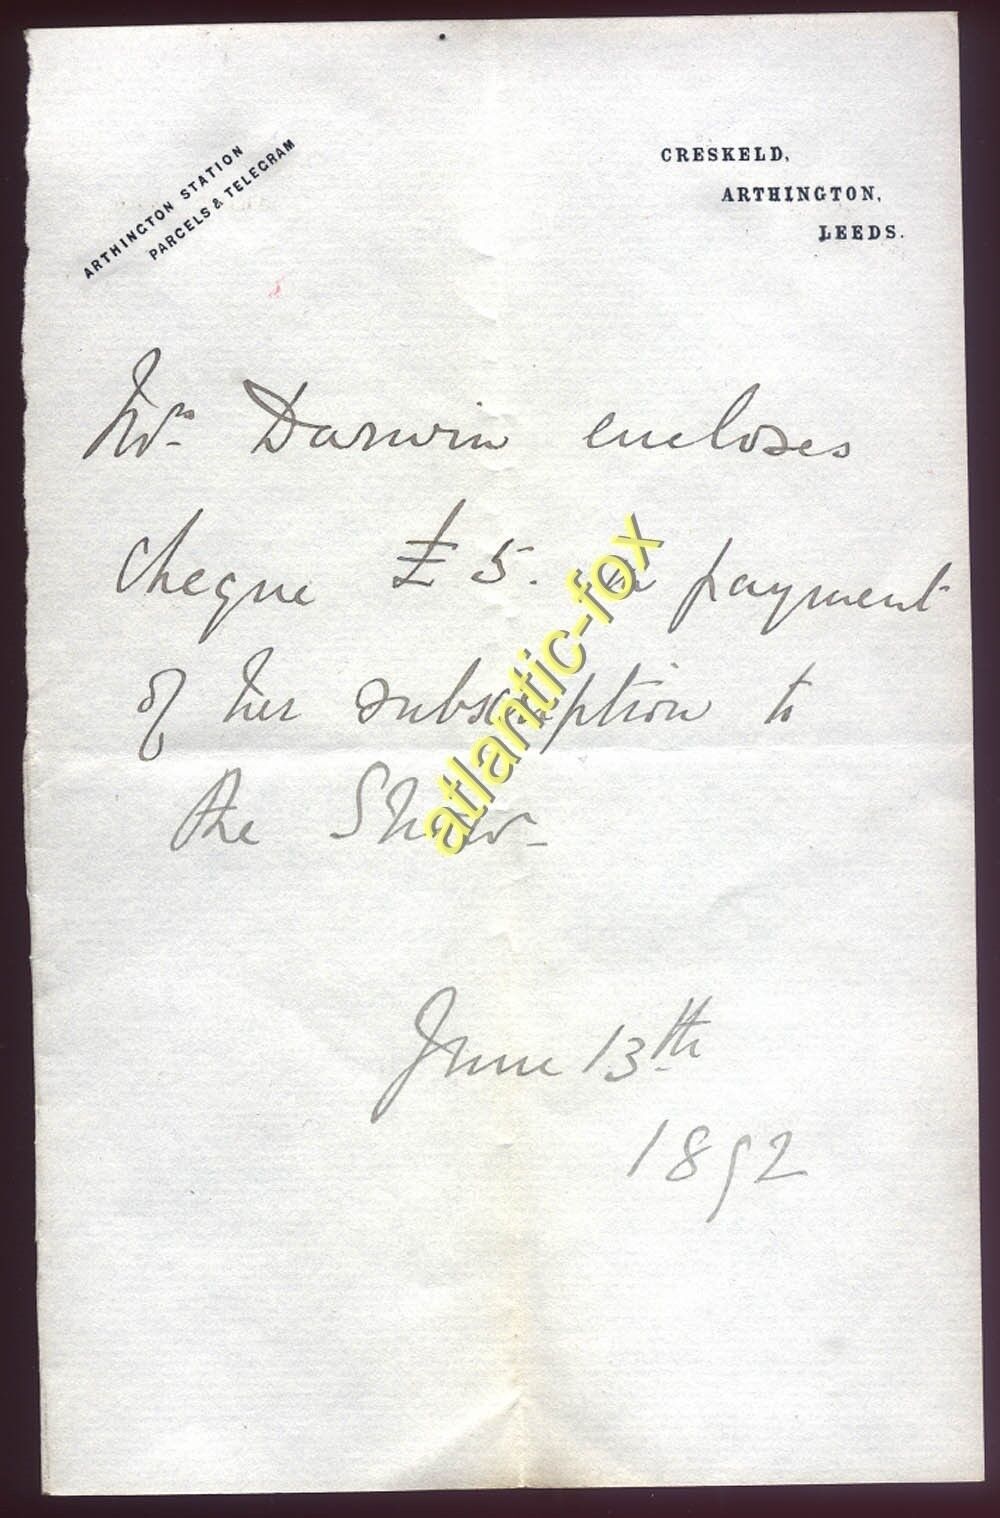 ARTHINGTON STATION
PARCELS & TELEGRAM
CRESKELD,
ARTHINGTON,
LEEDS.
Mrs. Darwin encloses
cheque £5. in payment
of her subscription to
the Show-
June 13th
1892
atlantic-fox